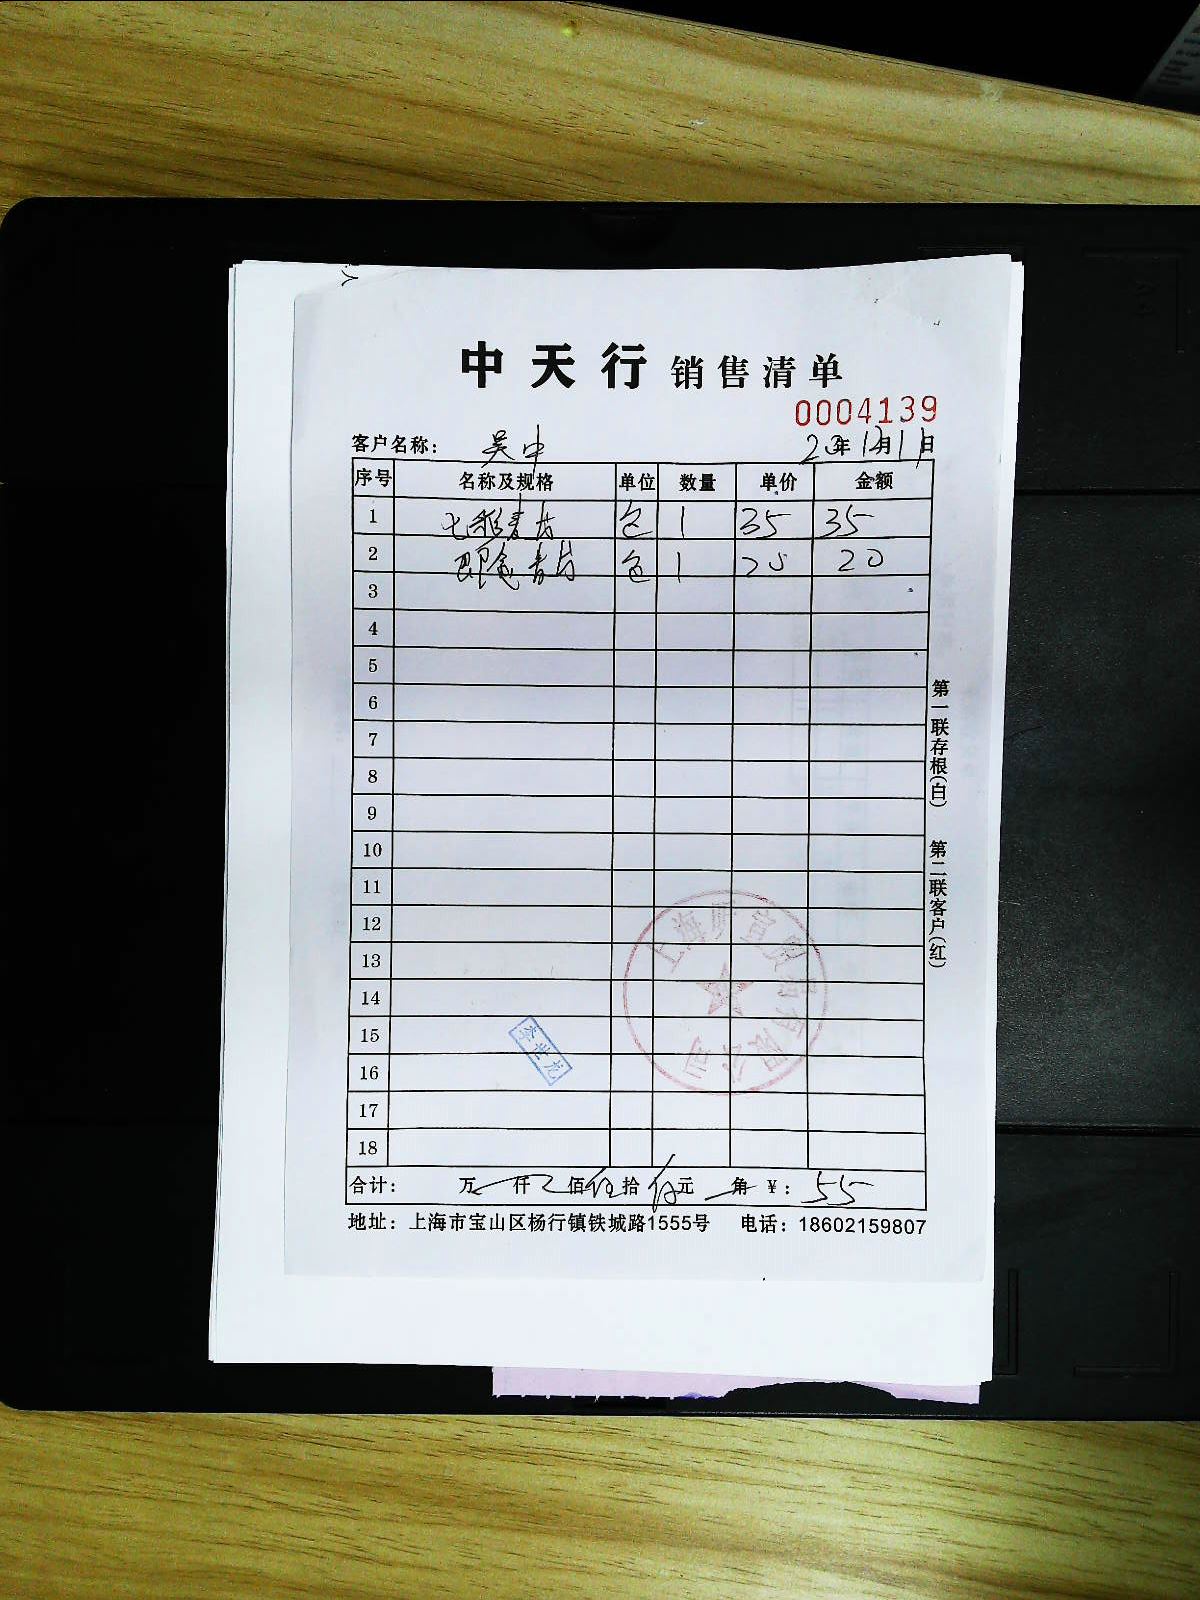 中天行 销售清单
0004139
客户名称： 吴中 20年12月11日
序号 名称及规格 单位 数量 单价 金额
1 七彩麦片 包 1 35 35
2 即食麦片 包 1 20 20
3
4
5
6
7
8
9
10
11
12
13
14
15
16
17
18
合计： 万 仟 佰伍拾伍元 角 ¥： 55
地址：上海市宝山区杨行镇铁城路1555号 电话：18602159807
第一联存根(白) 第二联客户(红)
李世龙